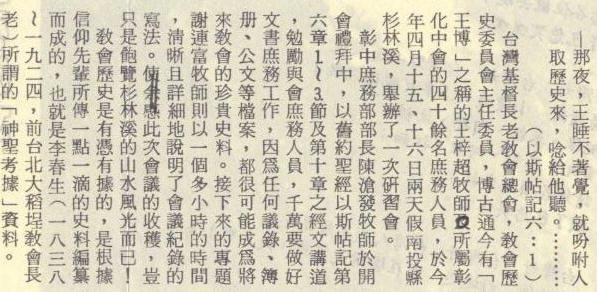 ─那夜，王睡不著覺，就吩咐人
取歷史來，唸給他聽。………
（以斯帖記六：1）
台灣基督長老教會總會，教會歷
史委員會主任委員，博古通今有「
王博」之稱的王梓超牧師及所屬彰
化中會的四十餘名庶務人員，於今
年四月十五、十六日兩天假南投縣
杉林溪，舉辦了一次研習會。
彰中庶務部部長陳滄發牧師於開
會禮拜中，以舊約聖經以斯帖記第
六章1～3節及第十章之經文講道
，勉勵與會庶務人員，千萬要做好
文書庶務工作，因為任何議錄、簿
册、公文等檔案，都很可能成為將
來教會的珍貴史料。接下來的專題
謝連富牧師則以一個多小時的時間
，清晰且詳細地說明了會議紀錄的
寫法。使參此次會議的收穫，豈
只是飽覽杉林溪的山水風光而已！
教會歷史是有憑有據的，是根據
信仰先輩所傳一點一滴的史料編纂
而成的，也就是李春生（一八三八
～一九二四，前台北大稻埕教會長
老）所謂的「神聖考據」資料。